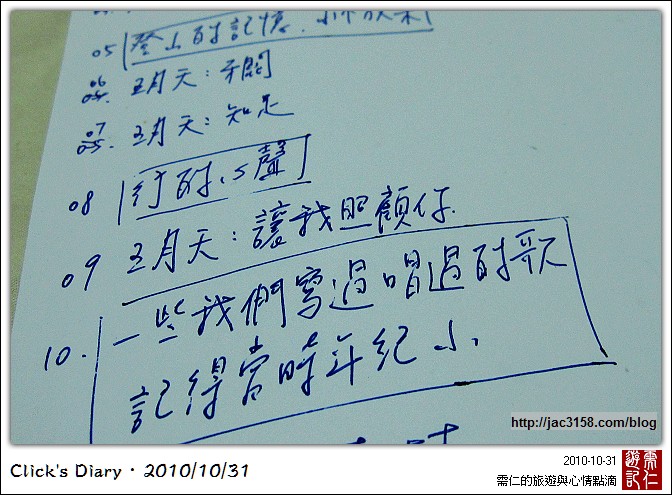 05 登山的記憶.
06 五月天：牙關
07 五月天：知足
08 行的心聲
09 五月天：讓我照顧你
10. 一些我們寫過唱過的歌
記得當時年紀小
http://jac3158.com/blog
Click's Diary・2010/10/31
2010-10-31
需仁的旅遊與心情點滴
需仁遊記